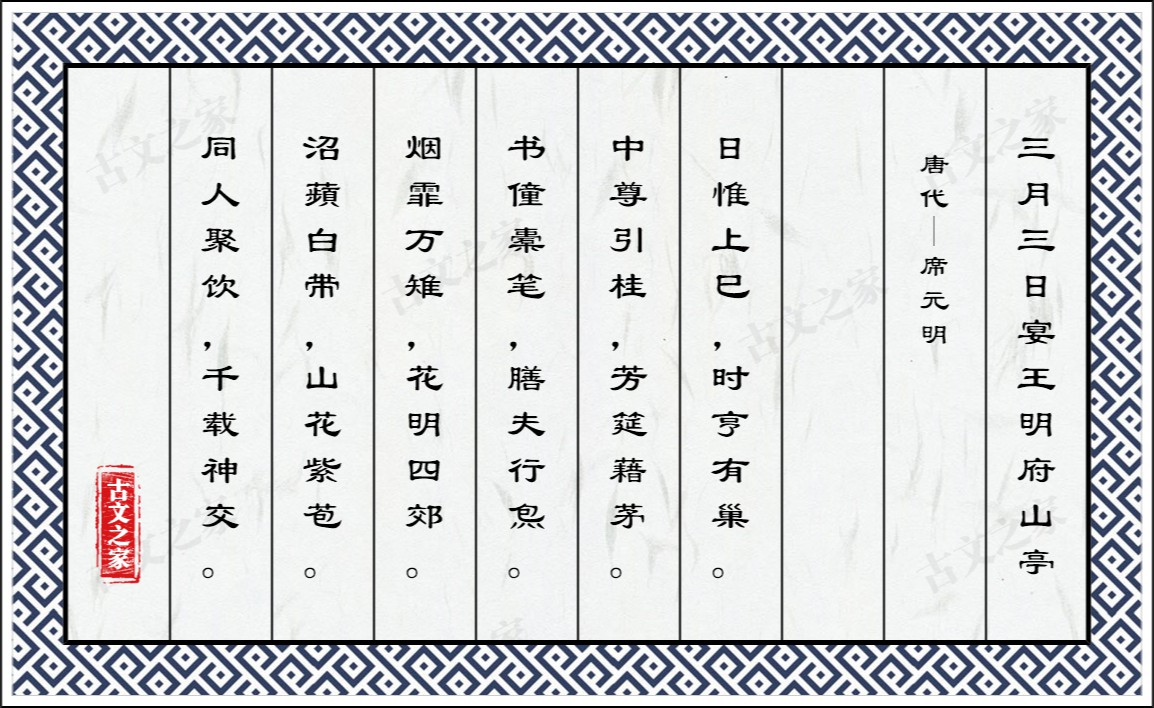 三月三日宴王明府山亭
唐代—席元明
日惟上巳，时亨有巢。
中尊引桂，芳筵藉茅。
书僮橐笔，膳夫行炰。
烟霏万雉，花明四郊。
沼蘋白带，山花紫苞。
同人聚饮，千载神交。
古文之家